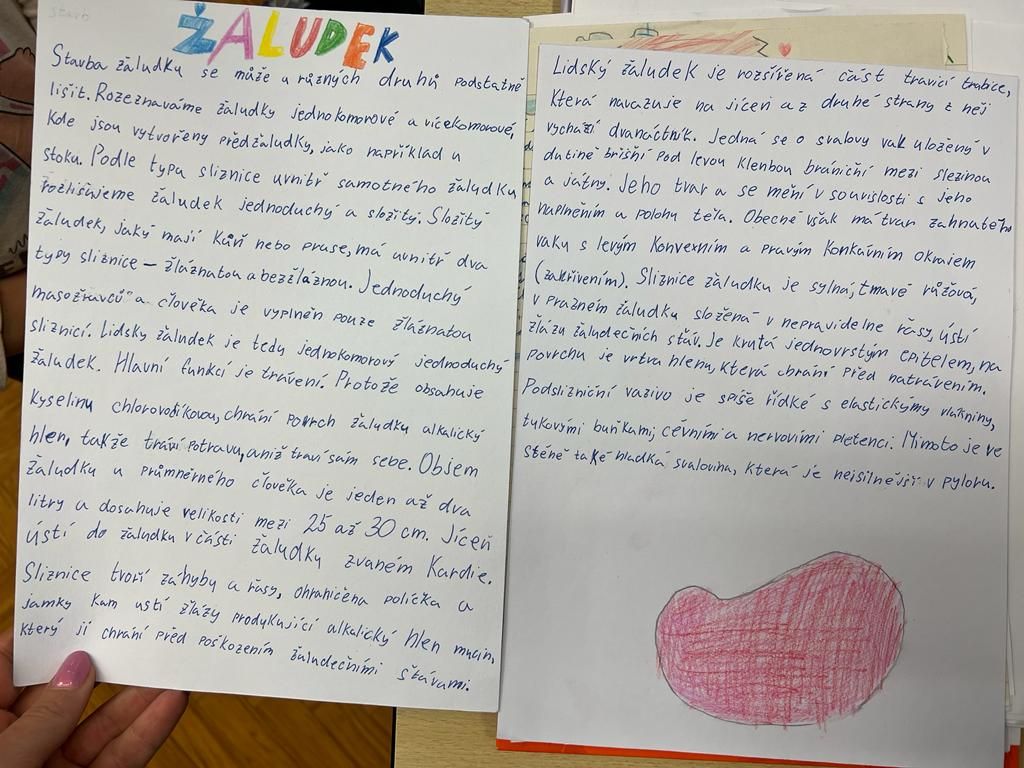 ŽALUDEK
Stavba žaludku se může u různých druhů podstatně
lišit. Rozeznaváme žaludky jednokomorové a vícekomorové,
kde jsou vytvořeny předžaludky, jako například u
stoku. Podle typa sliznice uvnitř samotného žaludku
rozlišujeme žaludek jednoduchý a složitý. Složitý
žaludek, jaký mají kůň nebo prase, má uvnitř dva
typy sliznice – žláznatou a bezžláznou. Jednoduchý
masožravců a člověka je vyplněn pouze žláznatou
sliznicí. Lidsky žaludek je tedy jednokomorový jednoduchý
žaludek. Hlavní funkcí je trávení. Protože obsahuje
kyselinu chlorovodíkovou, chrání povrch žaludku alkalický
hlen, takže tráví potravu, aniž traví sám sebe. Objem
žaludku u průmněrného člověka je jeden až dva
litry a dosahuje velikosti mezi 25 až 30 cm. Jícen
ústí do žaludku v části žaludku zvaném Kardie.
Sliznice tvoří záhyby a řasy, ohraničena políčka a
jamky kam ustí žlázy produkující alkalický hlen mucin,
který jí chrání před poškozením žaludečními šťávami.
Lidský žaludek je rozšířená část travicí trubice,
která navazuje na jícen a z druhé strany z něj
vychází dvanáctník. Jedná se o svalovy vak uložený v
dutině břišní pod levou klenbou brániční mezi slezinou
a játry. Jeho tvar a se mění v souvislosti s jeho
naplněním u polohu těla. Obecně však má tvar zahnutého
vaku s levým konvexním a pravým konkávním okraiem
(zakřivením). Sliznice žaludku je sylná, tmavě růžová,
v prazném žaludku složená v nepravidelne řasy, ústí
žlázy žaludečních stáv. Je krutá jednovrstým epitelem, na
povrchu je vrtva hlenu, která chrání před natrávením.
Podslizniční vazivo je spíše řídké s elastickýmy vlakniny,
tukovými buňkami, cévními a nervovími pletenci. Mimoto je ve
stěně také hladká svalovina, která je nejsilnější v pyloru.